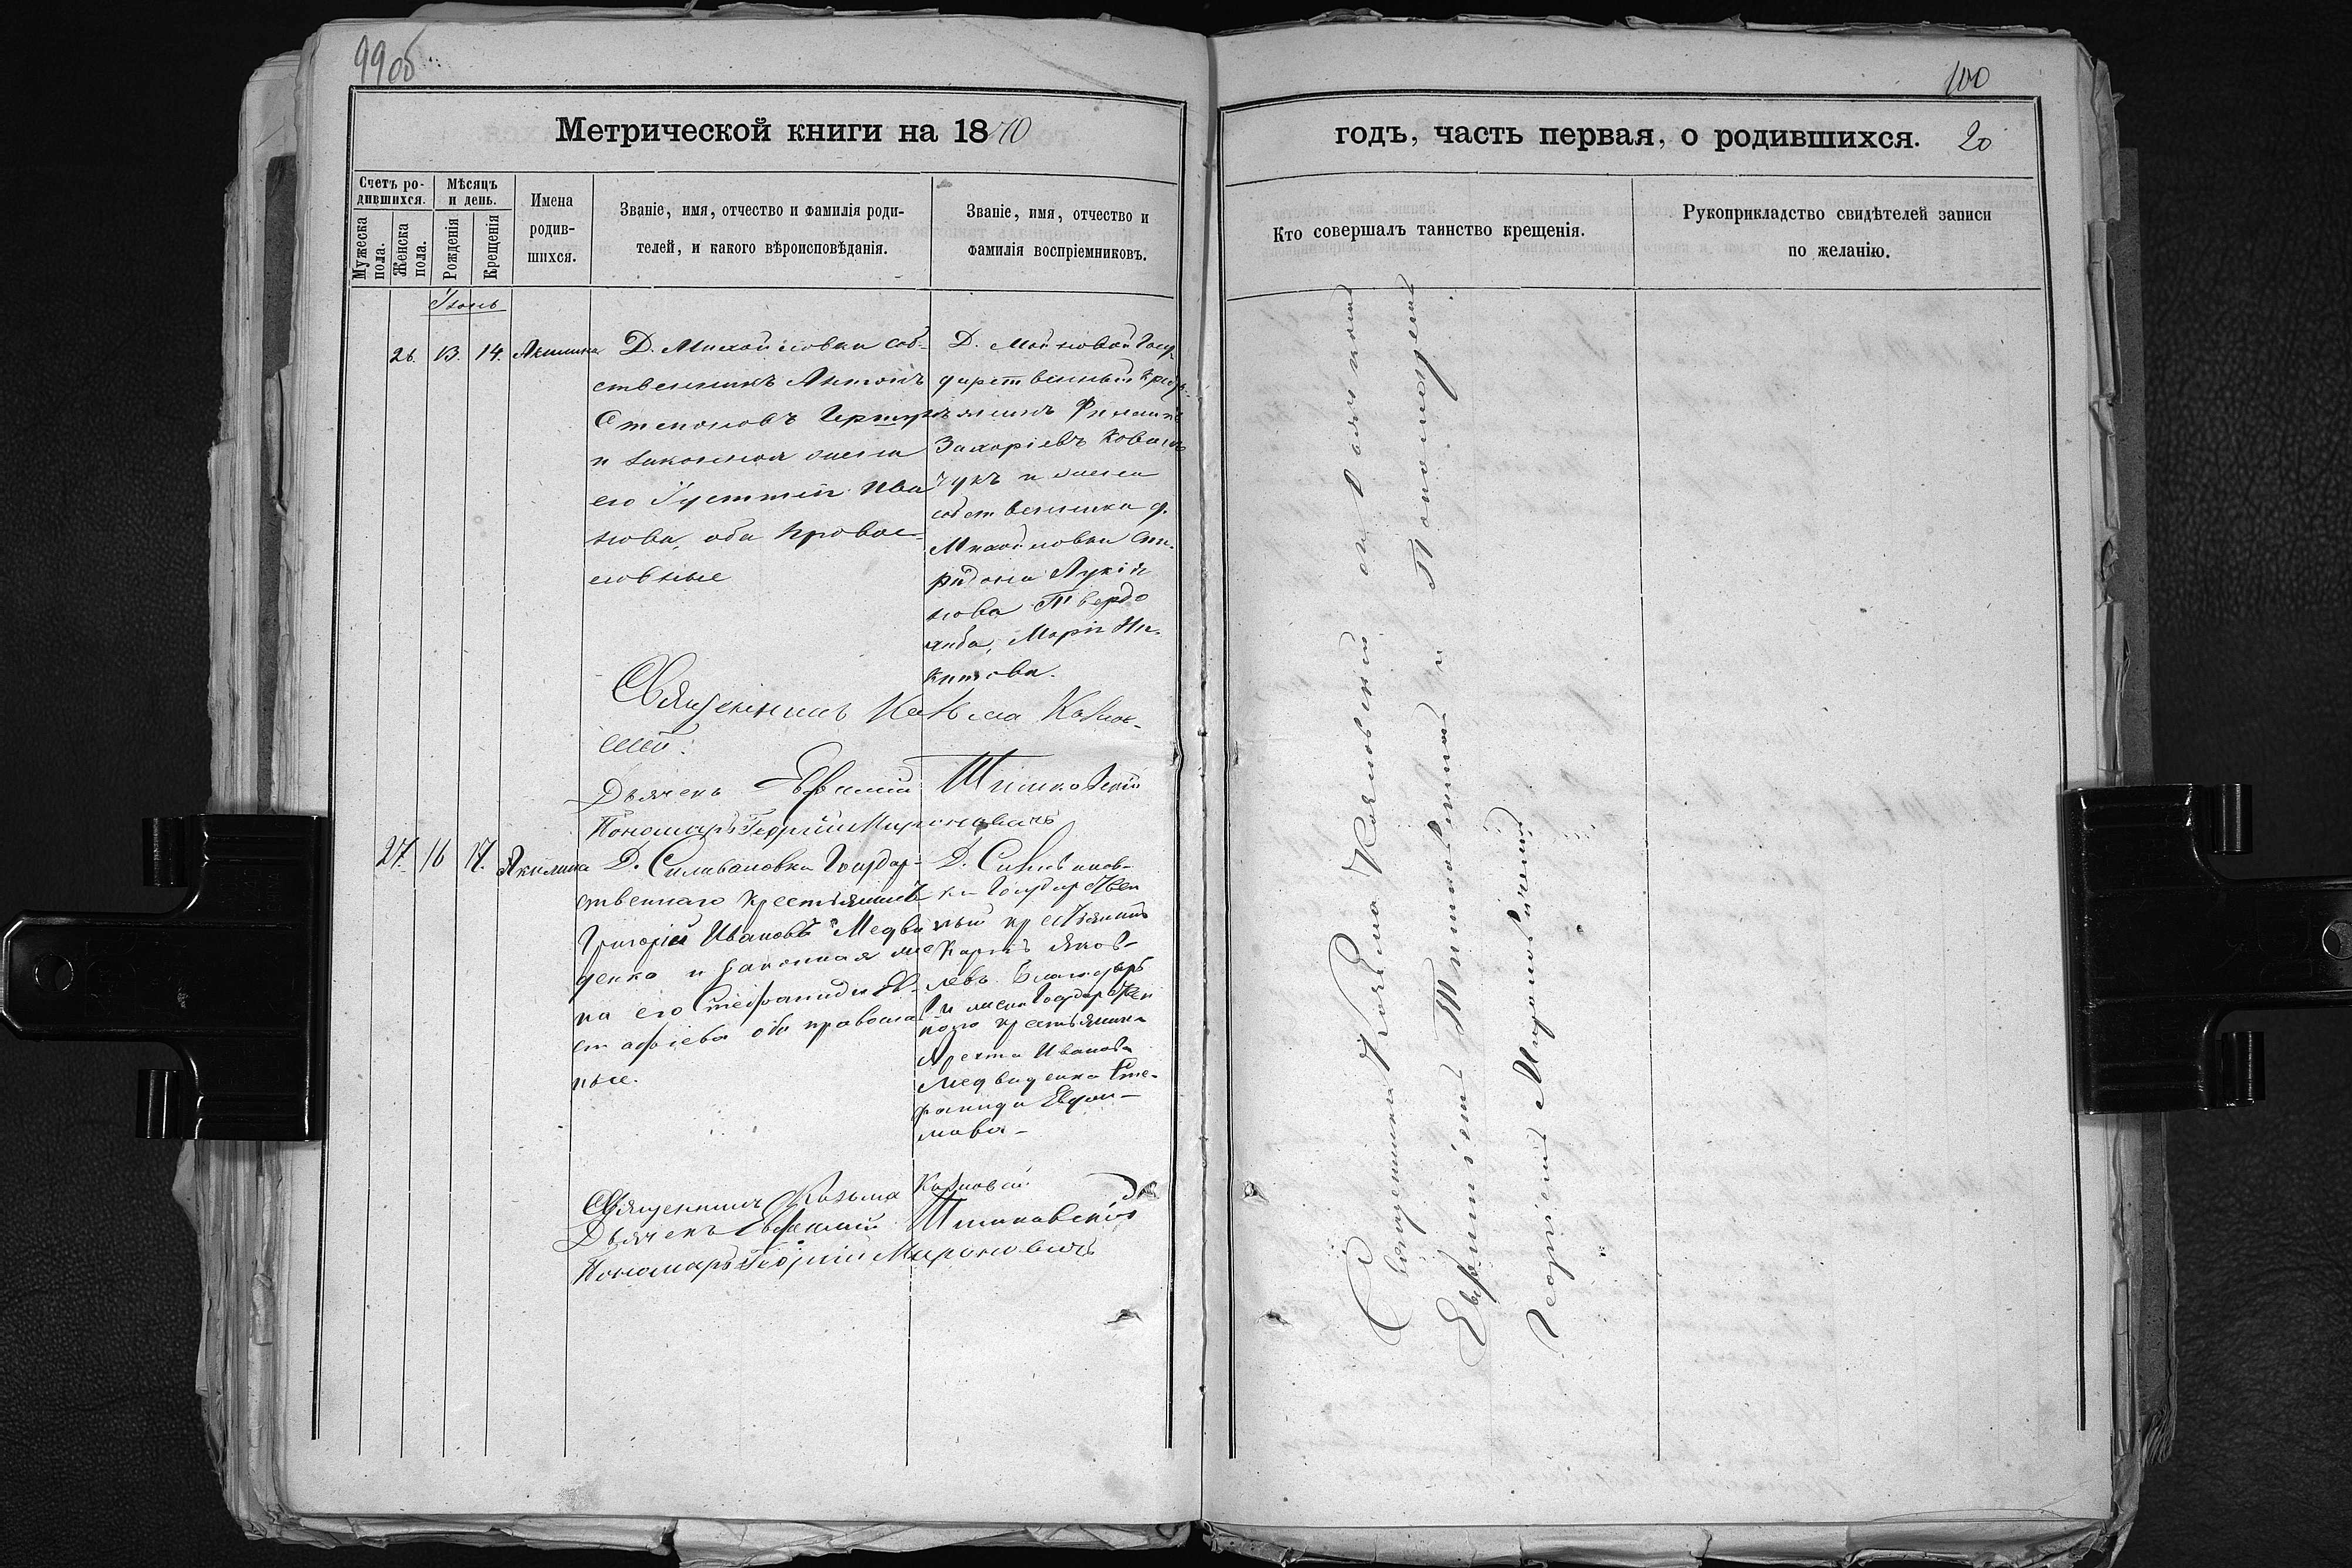 99 об
Метрической книги на 1870
Счетъ ро-
дившихся.
Мѣсяцъ
и день.
Мужеска
пола.
Женска
пола.
Рожденія
Крещенія
Имена
родив-
шихся.
Званіе, имя, отчество и фамилія роди-
телей, и какого вѣроисповѣданія.
Званіе, имя, отчество и
фамилія воспріемниковъ.
Іюнь
26. 13. 14. Акилина
Д. Михайловки соб-
ственникъ Антонъ
Степановъ
и законная жена
его Іустинія Ива
нова, оба Правос-
лавные
Д. Госу
дарственный крест
янинъ Филипъ
Захаріевъ Коваль
чукъ и жена
собственника д.
Михайловки Спи-
ридона Лукія
нова Твердо
хлѣба, Марія Ни-
китова.
Священникъ Козьма
Дьячекъ Евфимій Тишковскій
Пономарь Георгій Мироновичъ
27. 16 17. Акилина
Д. Силивановка Государ-
ственнаго крестьянинъ
Григорій Ивановъ Медви
денко и законная же
на его Стефанида Ев-
стафіева оба православ
ные.
Д. Силиванов-
ки Государствен
ный крестьянинъ
Карпъ Яков-
левъ
и жена Государствен
ного крестьянина
Иванова
Медвиденка Сте-
фанида Евдоки-
мова
Священникъ Козьма
Дьячекъ Евфимій Тишковскій
Пономарь Георгій Мироновичъ
100
годъ, часть первая, о родившихся. 20
Кто совершалъ таинство крещенія.
Рукоприкладство свидѣтелей записи
по желанію.
Священникъ Козьма съ Дьячкомъ
Евфиміемъ Тишковскимъ и Пономаремъ
Георгіемъ Мироновичемъ